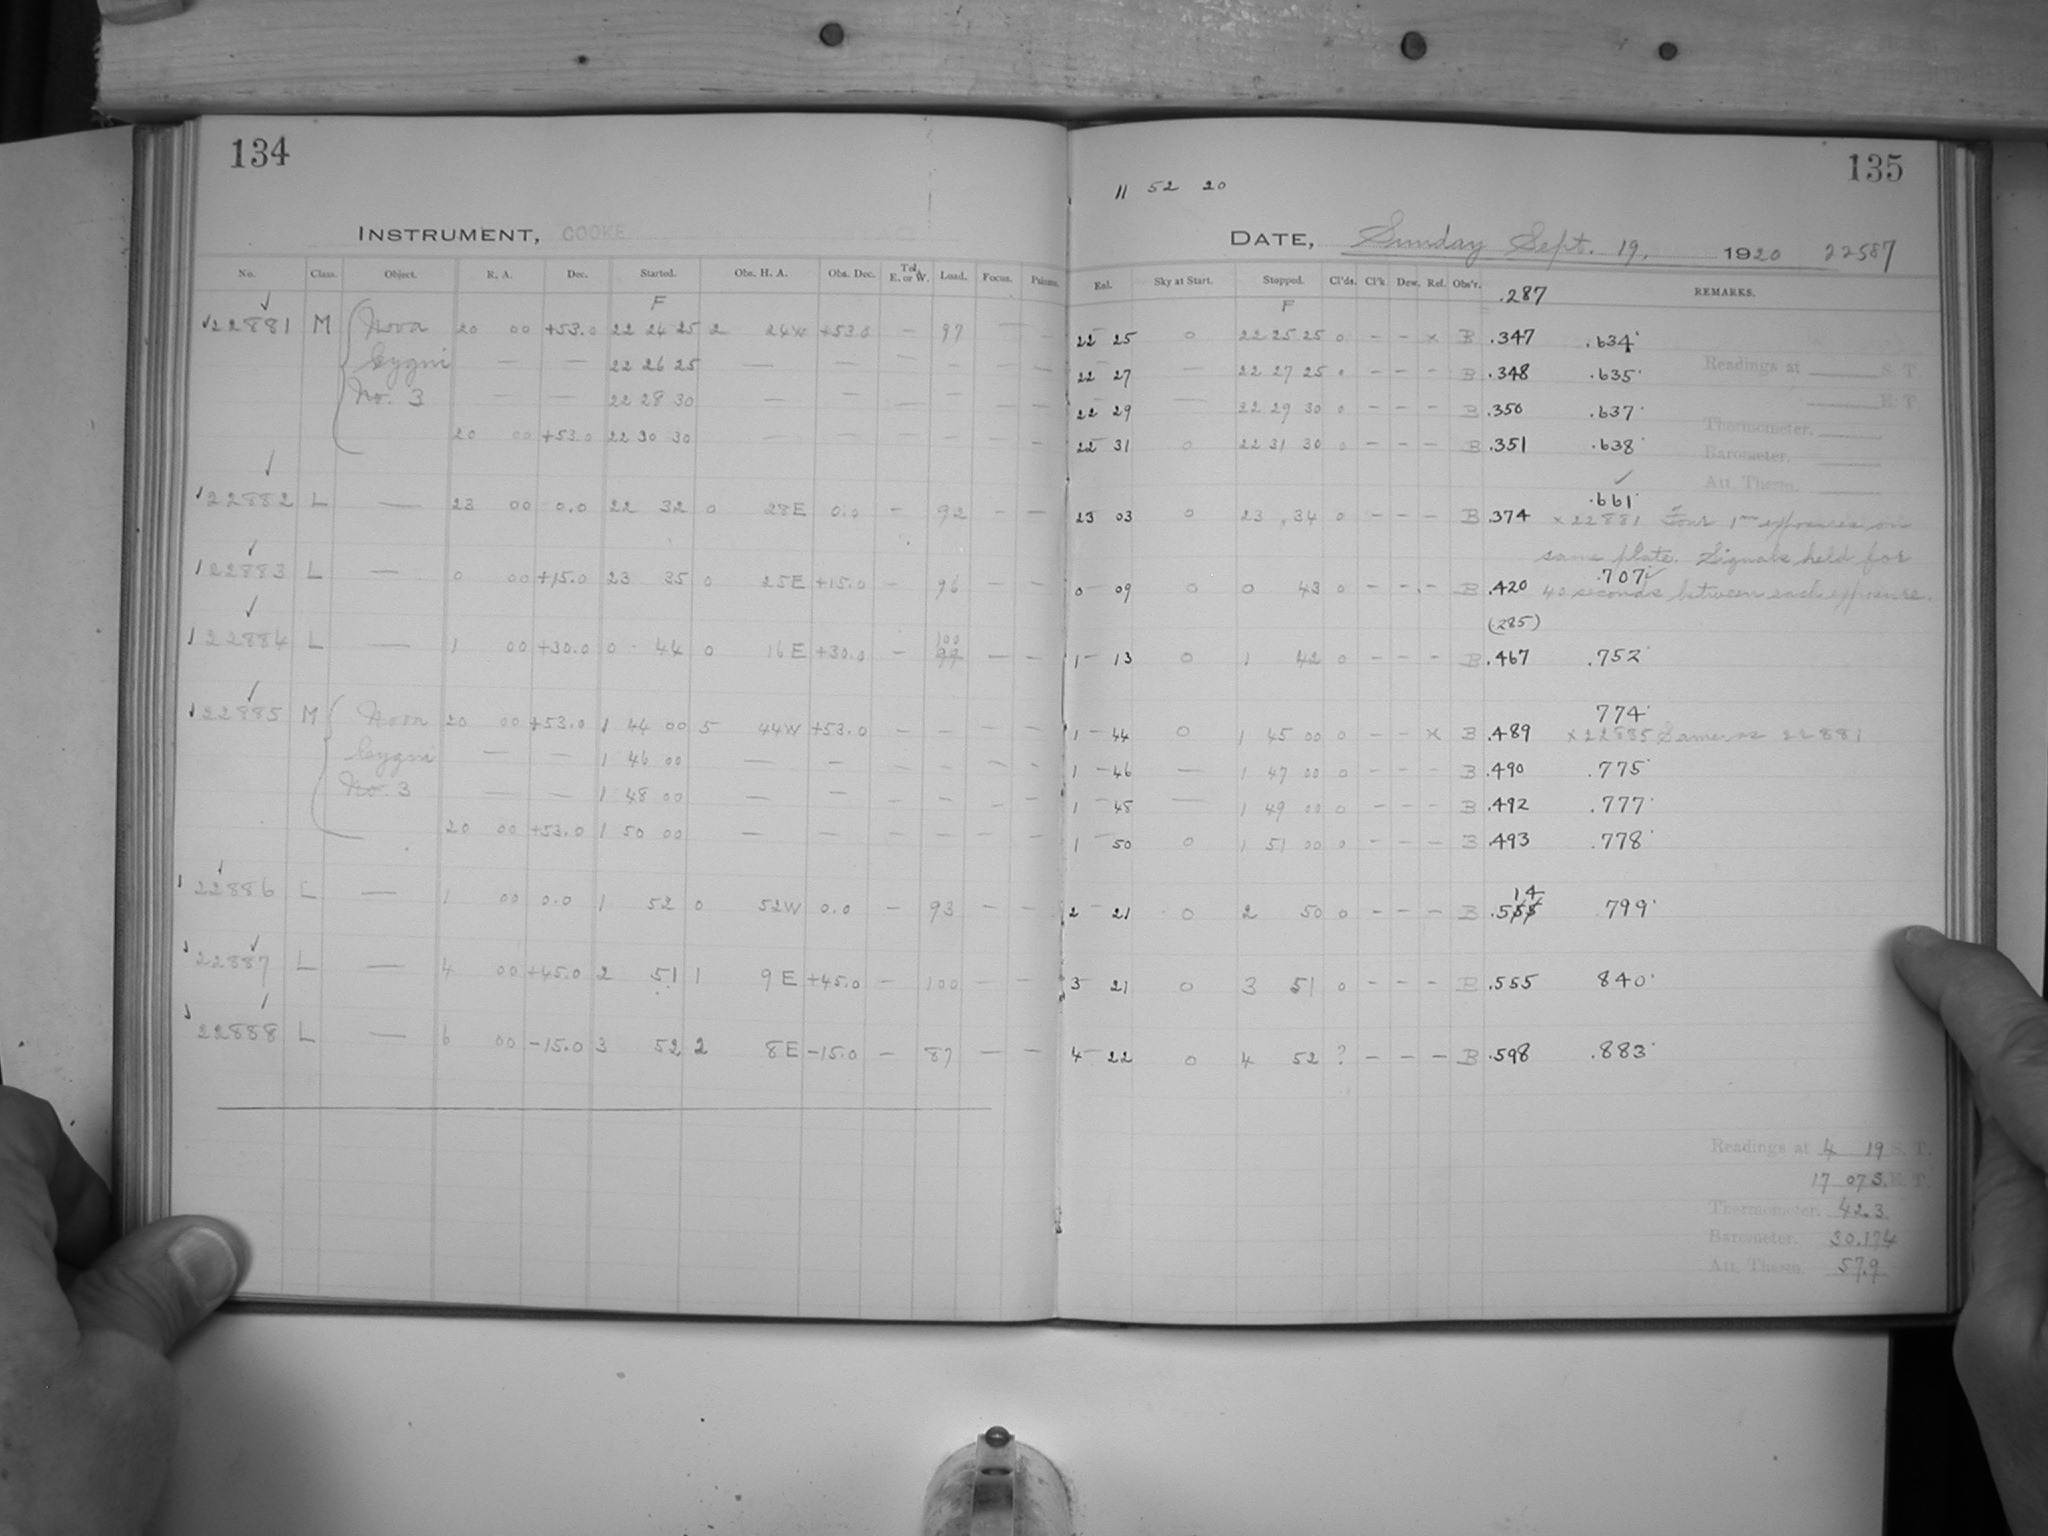 134
INSTRUMENT, COOKE
No. Class. Object. R. A. Dec. Started. Obs. H. A. Obs. Dec. Tel. E. or W. Load. Focus.
F
22881 M Nova 20 00 +53.0 22 24 25 2 24W +53.0 — 97 — —
Cygni — — 22 26 25 — — — — — —
No. 3 — — 22 28 30 — — — — — —
20 00 +53.0 22 30 30 — — — — — —
22882 L — 23 00 0.0 22 32 0 28E 0.0 — 92 — —
22883 L — 0 00 +15.0 23 35 0 25E +15.0 — 96 — —
100
22884 L — 1 00 +30.0 0 44 0 16E +30.0 — 99 — —
22885 M Nova 20 00 +53.0 1 44 00 5 44W +53.0 — — — —
Cygni — — 1 46 00 — — — — — —
No. 3 — — 1 48 00 — — — — — —
20 00 +53.0 1 50 00 — — — — — —
22886 L — 1 00 0.0 1 52 0 52W 0.0 — 93 — —
22887 L — 4 00 +45.0 2 51 1 9E +45.0 — 100 — —
22888 L — 6 00 -15.0 3 52 2 8E -15.0 — 87 — —
135
11 52 20
DATE, Sunday Sept. 19, 1920 22587
Eal. Sky at Start. Stopped. Cl'ds. Cl'k Dew. Ref. Obs'r. .287 REMARKS.
F
22 25 0 22 25 25 0 - - x B .347 .634
22 27 — 22 27 25 0 - - - B .348 .635 Readings at S. T.
22 29 — 22 29 30 0 - - - B .350 .637 E. T
22 31 0 22 31 30 0 - - - B .351 .638 Thermometer.
Barometer.
Att. Therm.
.661
23 03 0 23 34 0 - - - B .374 x 22881 Four 1m exposures on
same plate. Signals held for
.707
0 09 0 0 43 0 - - - B .420 40 seconds between each exposure.
(.285)
1 13 0 1 42 0 - - - B .467 .752
774
1 44 0 1 45 00 0 - - x B .489 x 22885 Same as 22881
1 46 — 1 47 00 0 - - - B .490 .775
1 48 — 1 49 00 0 - - - B .492 .777
1 50 0 1 51 00 0 - - - B .493 .778
14
2 21 0 2 50 0 - - - B .555 .799
3 21 0 3 51 0 - - - B .555 840
4 22 0 4 52 ? - - - B .598 .883
Readings at 4 19 S. T.
17 07 S. E. T.
Thermometer. 42.3
Barometer. 30.174
Att. Therm. 57.9